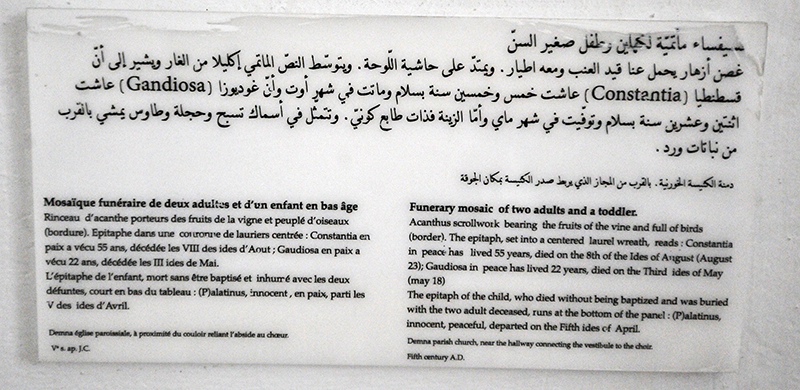 فسيفساء مأتميّة لكهلين وطفل صغير السنّ
غصن أزهار يحمل عنا قيد العنب ومعه اطيار . ويمتدّ على حاشية اللّوحة . ويتوسّط النصّ الماتمي إكليلا من الغار ويشير إلى أنّ
قسطنطيا (Constantia) عاشت خمس وخمسين سنة بسلام وماتت في شهر أوت وأنّ غوديوزا (Gandiosa) عاشت
اثنتين وعشرين سنة بسلام وتوفّيت في شهر ماي وأمّا الزينة فذات طابع كونيّ . وتتمثّل في أسماك تسبح وحجلة وطاوس يمشي بالقرب
من نباتات ورد .
دمنة الكنيسة الخورنية . بالقرب من المجاز الذي يربط صدر الكنيسة بمكان الجوقة
Mosaïque funéraire de deux adultes et d'un enfant en bas âge
Rinceau d'acanthe porteurs des fruits de la vigne et peuplé d'oiseaux
(bordure). Epitaphe dans une couronne de lauriers centrée : Constantia en
paix a vécu 55 ans, décédée les VIII des ides d'Aout ; Gaudiosa en paix a
vécu 22 ans, décédée les III ides de Mai.
L'épitaphe de l'enfant, mort sans être baptisé et inhumé avec les deux
défuntes, court en bas du tableau : (P)alatinus, innocent , en paix, parti les
V des ides d'Avril.
Demna église paroissiale, à proximité du couloir reliant l'abside au chœur.
Vᵉ s. ap. J.C.
Funerary mosaic of two adults and a toddler.
Acanthus scrollwork bearing the fruits of the vine and full of birds
(border). The epitaph, set into a centered laurel wreath, reads : Constantia
in peace has lived 55 years, died on the 8th of the Ides of August (August
23); Gaudiosa in peace has lived 22 years, died on the Third ides of May
(may 18)
The epitaph of the child, who died without being baptized and was buried
with the two adult deceased, runs at the bottom of the panel : (P)alatinus,
innocent, peaceful, departed on the Fifth ides of April.
Demna parish church, near the hallway connecting the vestibule to the choir.
Fifth century A.D.